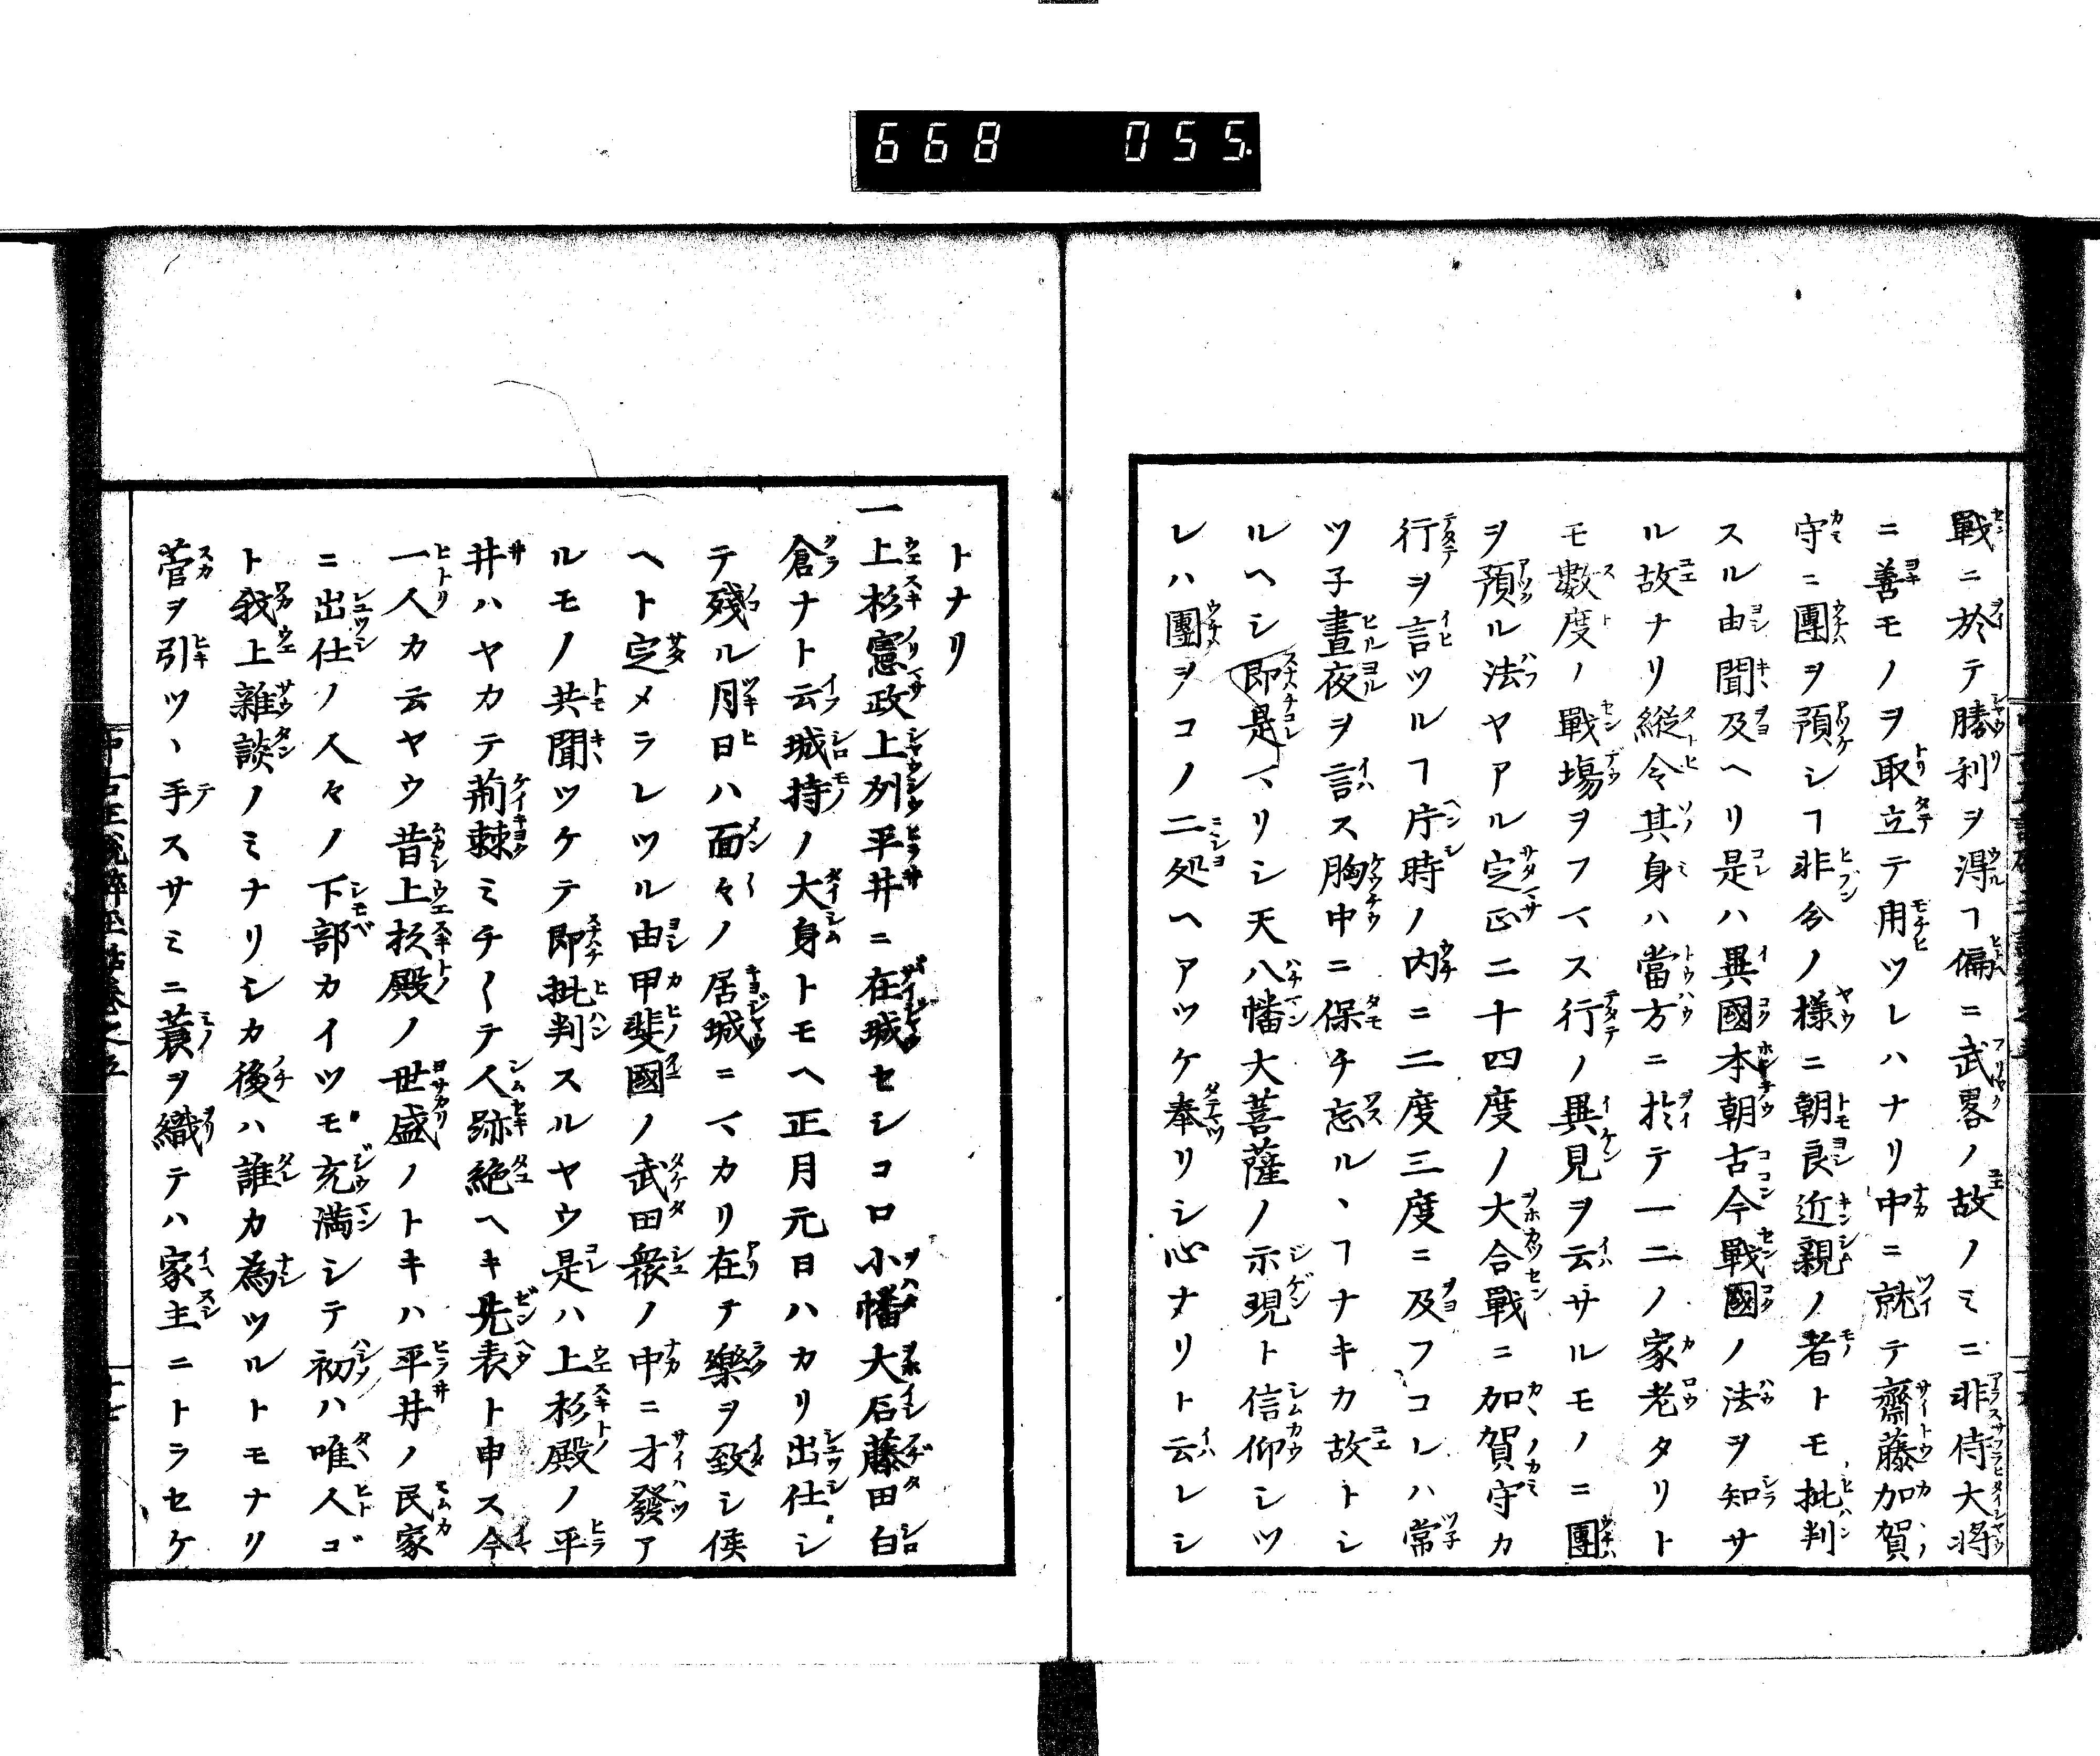 668 055.
戰ニ於テ勝利ヲ淂ルヿ偏ニ武畧ノ故ノミニ非侍大將
ニ善モノヲ取立テ用ツレハナリ中ニ就テ齋藤加賀
守ニ團ヲ預シヿ非分ノ様ニ朝良近親ノ者トモ批判
スル由聞及ヘリ是ハ異國本朝古今戰國ノ法ヲ知サ
ル故ナリ縦令其身ハ當方ニ於テ一二ノ家老タリト
モ數度ノ戰塲ヲフマス行ノ異見ヲ云サルモノニ團
ヲ預ル法ヤアル定正二十四度ノ大合戰ニ加賀守カ
行ヲ言ツルヿ片時ノ内ニ二度三度ニ及フコレハ常
ツ子晝夜ヲ言ス胸中ニ保チ忘ルヽヿナキカ故トシ
ルヘシ即是マリシ天八幡大菩薩ノ示現ト信仰シツ
レハ團ヲコノ二処ヘアツケ奉リシ心ナリト云レシ
トナリ
一上杉憲政上列平井ニ在城セシコロ小幡大石藤田白
倉ナト云城持ノ大身トモヘ正月元日ハカリ出仕シ
テ殘ル月日ハ面々ノ居城ニマカリ在テ樂ヲ致シ候
ヘト定メラレツル由甲斐國ノ武田衆ノ中ニ才發ア
ルモノ共聞ツケテ即批判スルヤウ是ハ上杉殿ノ平
井ハヤカテ荊棘ミチ〱テ人跡絶ヘキ先表ト申ス今
一人カ云ヤウ昔上杉殿ノ世盛ノトキハ平井ノ民家
ニ出仕ノ人々ノ下部カイツモ充満シテ初ハ唯人ゴ
ト我上雜談ノミナリシカ後ハ誰カ為ツルトモナリ
菅ヲ引ツヽ手スサミニ蓑ヲ織テハ家主ニトラセケ